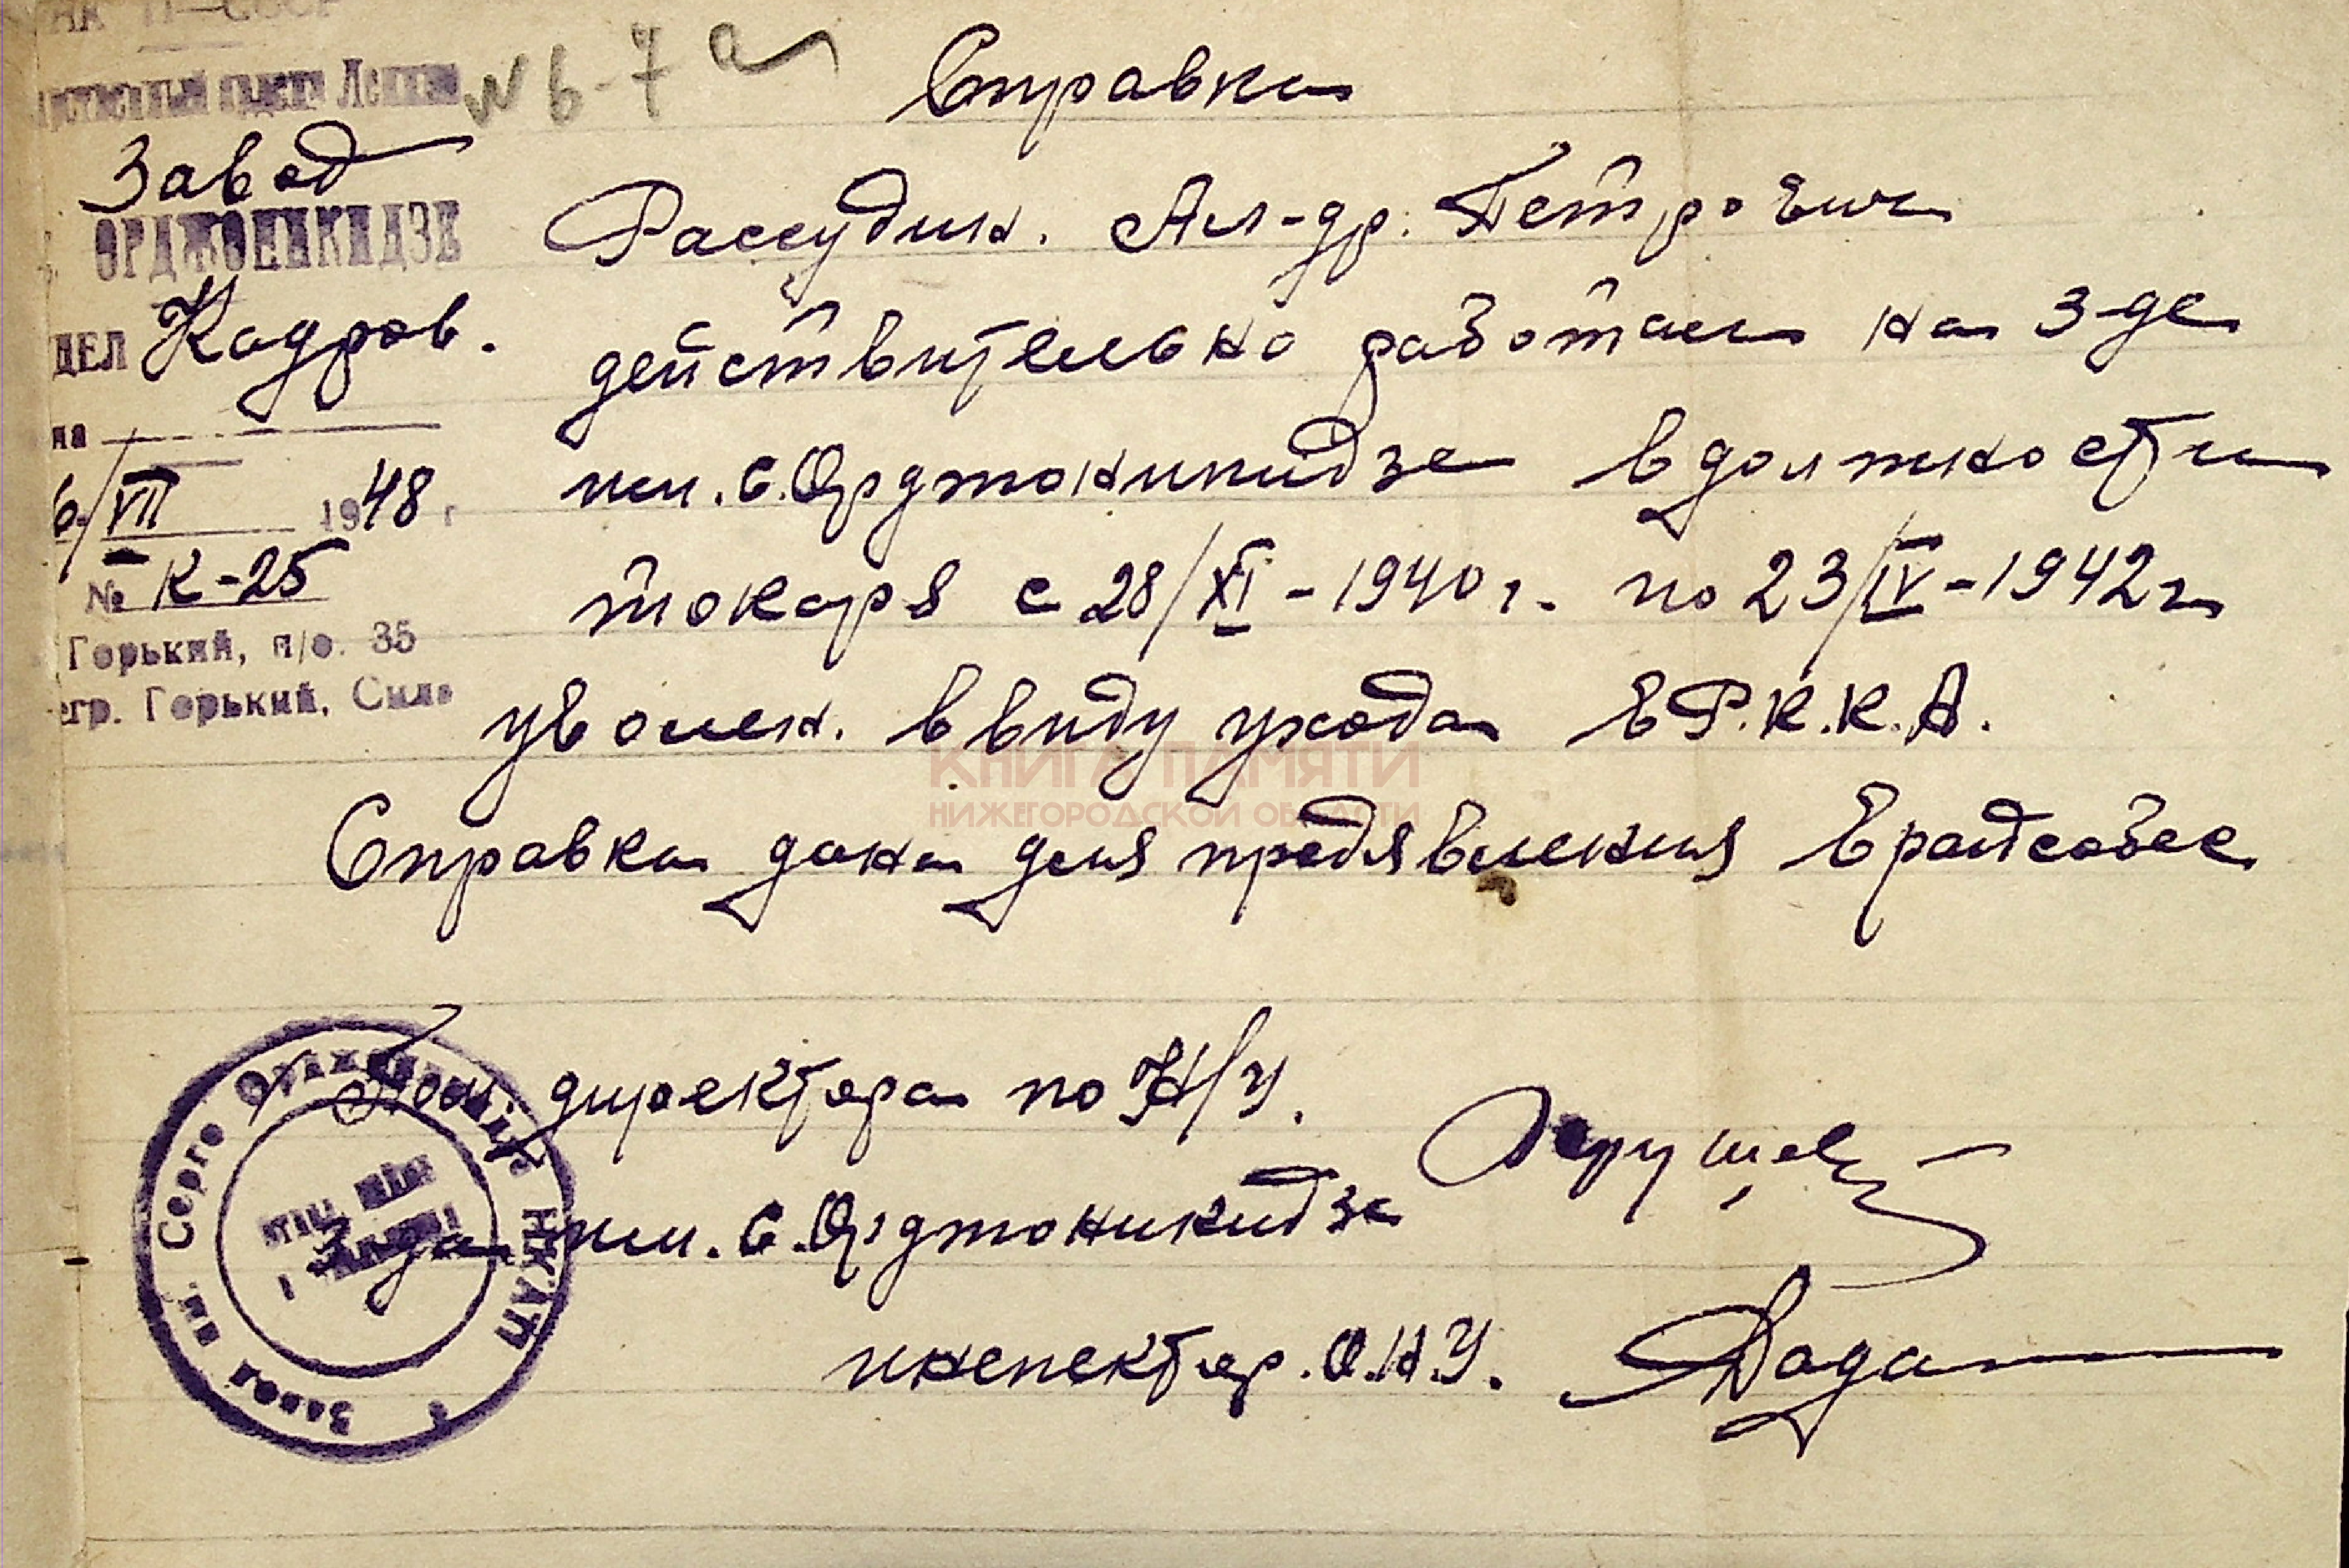 № 6-7а
Справка
Завод
ОРДЖОНИКИДЗЕ
Рассудин. Ал-др. Петрович
ДЕЛ Кадров.
действительно работал на з-де
на
им. С. Орджоникидзе в должности
6/VII 1948 г
№ К-25
токаря с 28/XI-1940 г. по 23/IV-1942 г
Горький, п/о. 35
егр. Горький,
уволен. ввиду ухода в Р.К.К.А.
КНИГА ПАМЯТИ
НИЖЕГОРОДСКОЙ ОБЛАСТИ
Справка дана для предявления в райсобес
Пом. директора по Н/У.
З-да им. С. Орджоникидзе
инспектор. О.Н.У.
Завод им. Серго Орджоникидзе НКАП